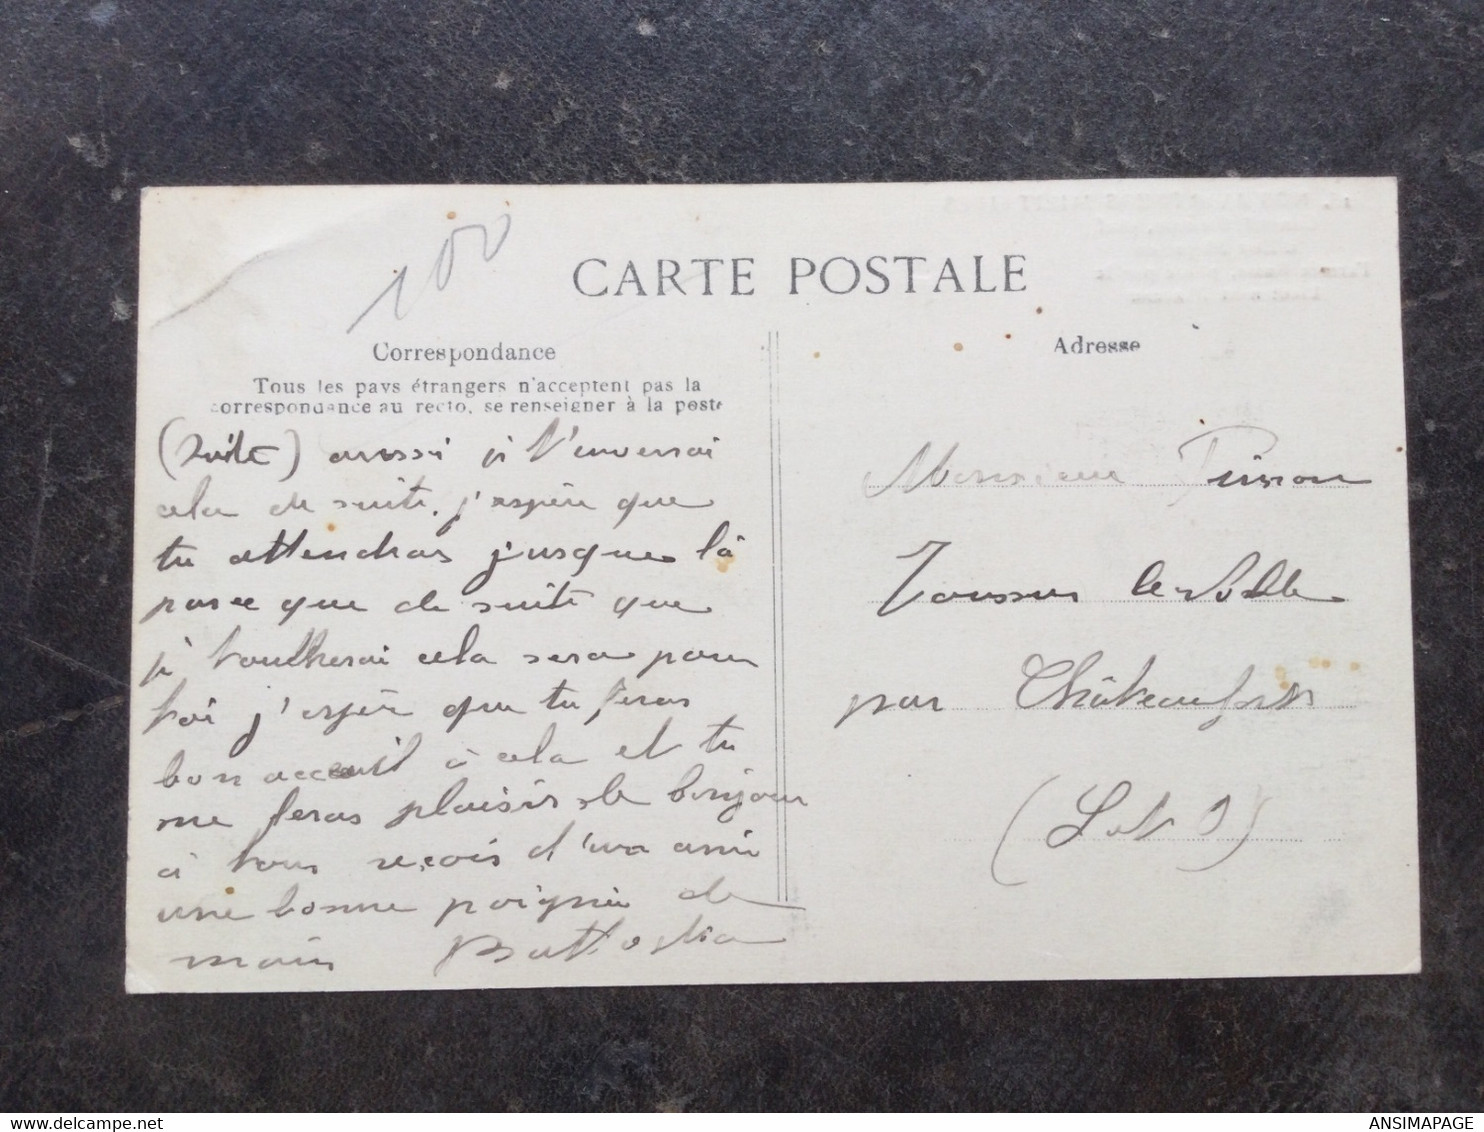 100
CARTE POSTALE
Correspondance
Tous les pays étrangers n'acceptent pas la
correspondance au recto, se renseigner à la poste
(Suite) aussi je t'enverrai
cela de suite, j'espère que
tu attendras jusque là
parce que de suite que
je toucherai cela sera pour
toi j'espère que tu feras
bon accueil à cela et tu
me feras plaisir, le bonjour
à tous reçois d'un ami
une bonne poignée de
main Battaglia
Adresse
Monsieur
Toussus le Noble
par Châteaufort
(S et O)
ANSIMAPAGE